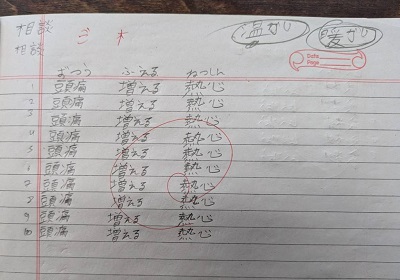 相談 温かい 暖かい
相談
Date
Page
ずつう ふえる ねっしん
1 頭痛 増える 熱心
2 頭痛 増える 熱心
3 頭痛 増える 熱心
4 頭痛 増える 熱心
5 頭痛 増える 熱心
6 頭痛 増える 熱心
7 頭痛 増える 熱心
8 頭痛 増える 熱心
9 頭痛 増える 熱心
10 頭痛 増える 熱心